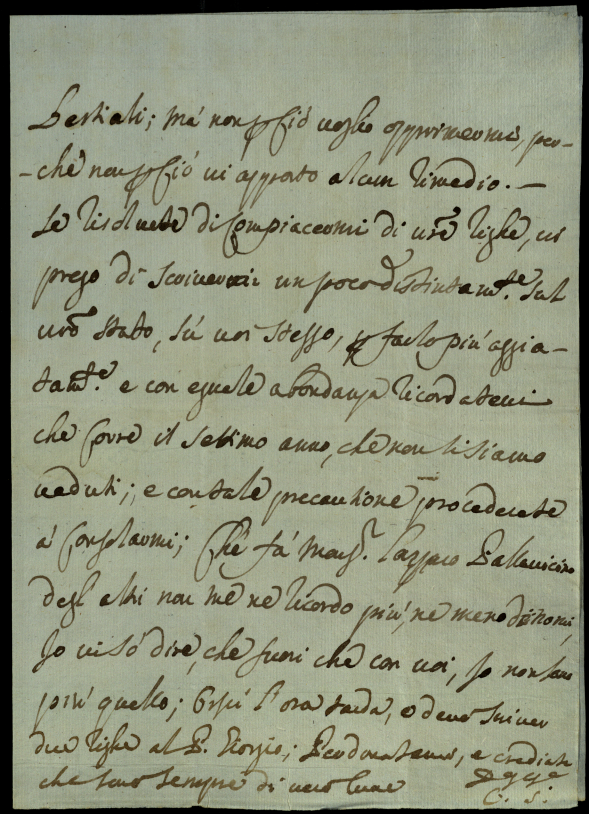 bestiali; má non p ciò voglio opprimermi, per-
-chè non p ciò vi apporto alcun rimedio. –
Se risolvete di compiacermi di vre righe, vi
prego di scrivermi un poco distintamte. Sul
vro stato, sú voi stesso, p farlo più aggia-
tamte. e con eguale abondanza ricordatevi
che corre il settimo anno, che non ci siamo
veduti; e con tale precautione procederete
a' consolarmi; Che fá Lazzaro Pallavicino
degl altri non me ne ricordo più, ne meno di nomi,
Io vi só dire, che fuori che con voi, Io non sono
più quello; l'ora tarda, e devo scriver
due righe al P. Giorgio; Perdonatemi, e crediate
che sono sempre di vero cuore
C. S.